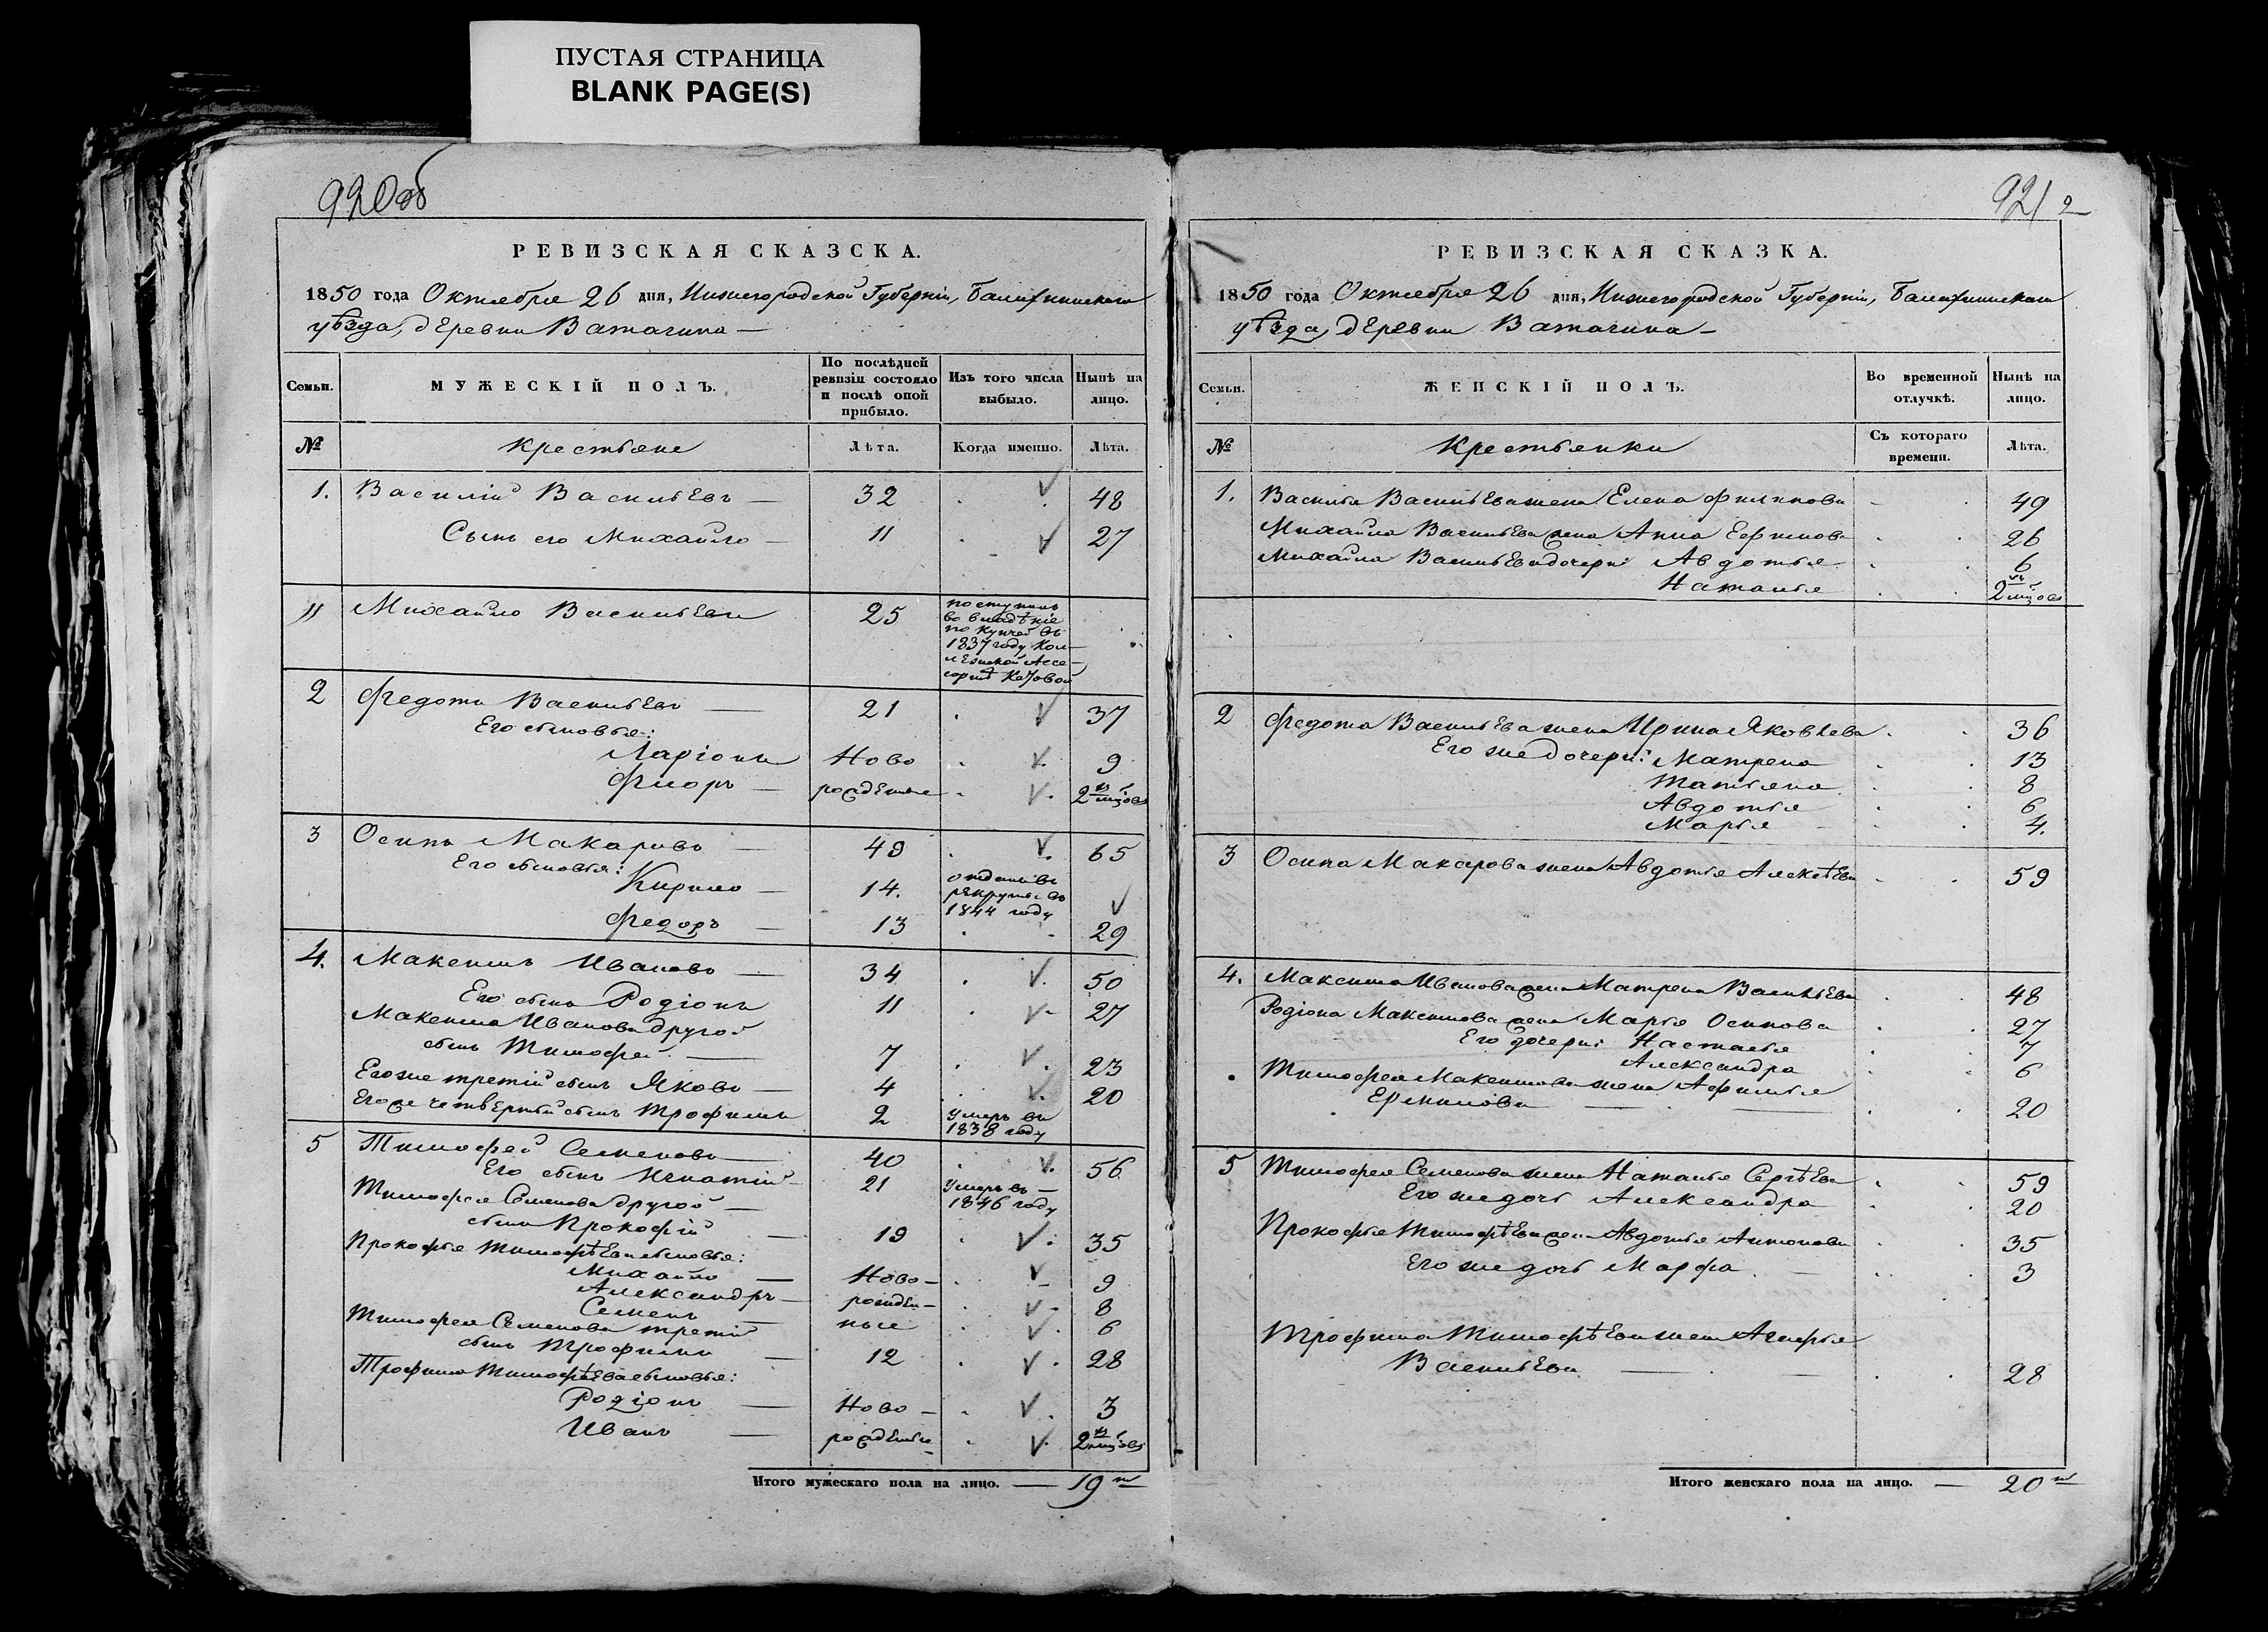 ПУСТАЯ СТРАНИЦА
BLANK PAGE(S)
920об
РЕВИЗСКАЯ СКАЗСКА.
1850 года Октября 26 дня, Нижегородской Губерніи, Балахнинскаго
уѣзда, деревни Ватагина
Семьи. МУЖЕСКІЙ ПОЛЪ. По послѣдней ревизіи состояло и послѣ оной прибыло. Изъ того числа выбыло. Нынѣ на лицо.
№ Крестьяне Лѣта. Когда именно. Лѣта.
1. Василій Васильевъ — 32 48
Сынъ его Михайло — 11 27
" Михайло Васильевъ 25 поступилъ во владѣніе по купчей въ 1837 году Коллежской Ассесоршѣ
2 Федотъ Васильевъ — 21 37
Его сыновья:
Ларіонъ Ново 9
Флоръ — рожденные 2 хъ мѣсцовъ
3 Осипъ Макаровъ — 49 65
Его сыновья:
Кирило — 14. отданъ въ рекруты въ 1844 году
Федоръ — 13 29
4. Максимъ Ивановъ — 34 50
Его сынъ Родіонъ 11 27
Максима Иванова другой
сынъ Тимофей — 7 23
Его же третій сынъ Яковъ — 4 20
Его же четвертый сынъ Трофимъ 2 Умеръ въ 1838 году
5 Тимофей Семеновъ — 40 56
Его сынъ Игнатій 21 Умеръ въ 1846 году
Тимофея Семенова другой —
сынъ Прокофій — 19 35
Прокофья Тимофѣева сыновья:
Михайло — Ново- 9
Александръ — рожден- 8
Семенъ — ные 6
Тимофея Семенова третій
сынъ Трофимъ — 12 28
Трофима Тимофѣева сыновья:
Родіонъ — Ново- 3
Иванъ — рожденные 2 хъ мѣсцовъ
Итого мужескаго пола на лицо. — 19
921 2
РЕВИЗСКАЯ СКАЗКА.
1850 года Октября 26 дня, Нижегородской Губерніи, Балахнинскаго
уѣзда, деревни Ватагина —
Семьи. ЖЕНСКІЙ ПОЛЪ. Во временной отлучкѣ. Нынѣ на лицо.
№ Крестьянки Съ котораго времени. Лѣта.
1. Василья Васильева жена Елена Филипова 49
Михайла Васильева жена Анна Ефимова 26
Михайла Васильева дочери Авдотья 6
Наталья 2 хъ мѣсцовъ
2 Федота Васильева жена Ирина Яковлева 36
Его же дочери: Матрена 13
Татьяна 8
Авдотья 6
Марья 4.
3 Осипа Макарова жена Авдотья Алексѣева 59
4. Максима Иванова жена Матрена Васильева 48
Родіона Максимова жена Марья Осипова 27
Его дочери: Настасья 7
Александра 6
Тимофея Максимова жена Афимья
Ермилова — 20
5 Тимофея Семенова жена Наталья Сергѣева 59
Его же дочь Александра 20
Прокофья Тимофѣева жена Авдотья Антонова 35
Его же дочь Марфа 3
Трофима Тимофѣева жена Агафья
Васильева — 28
Итого женскаго пола на лицо. — 20